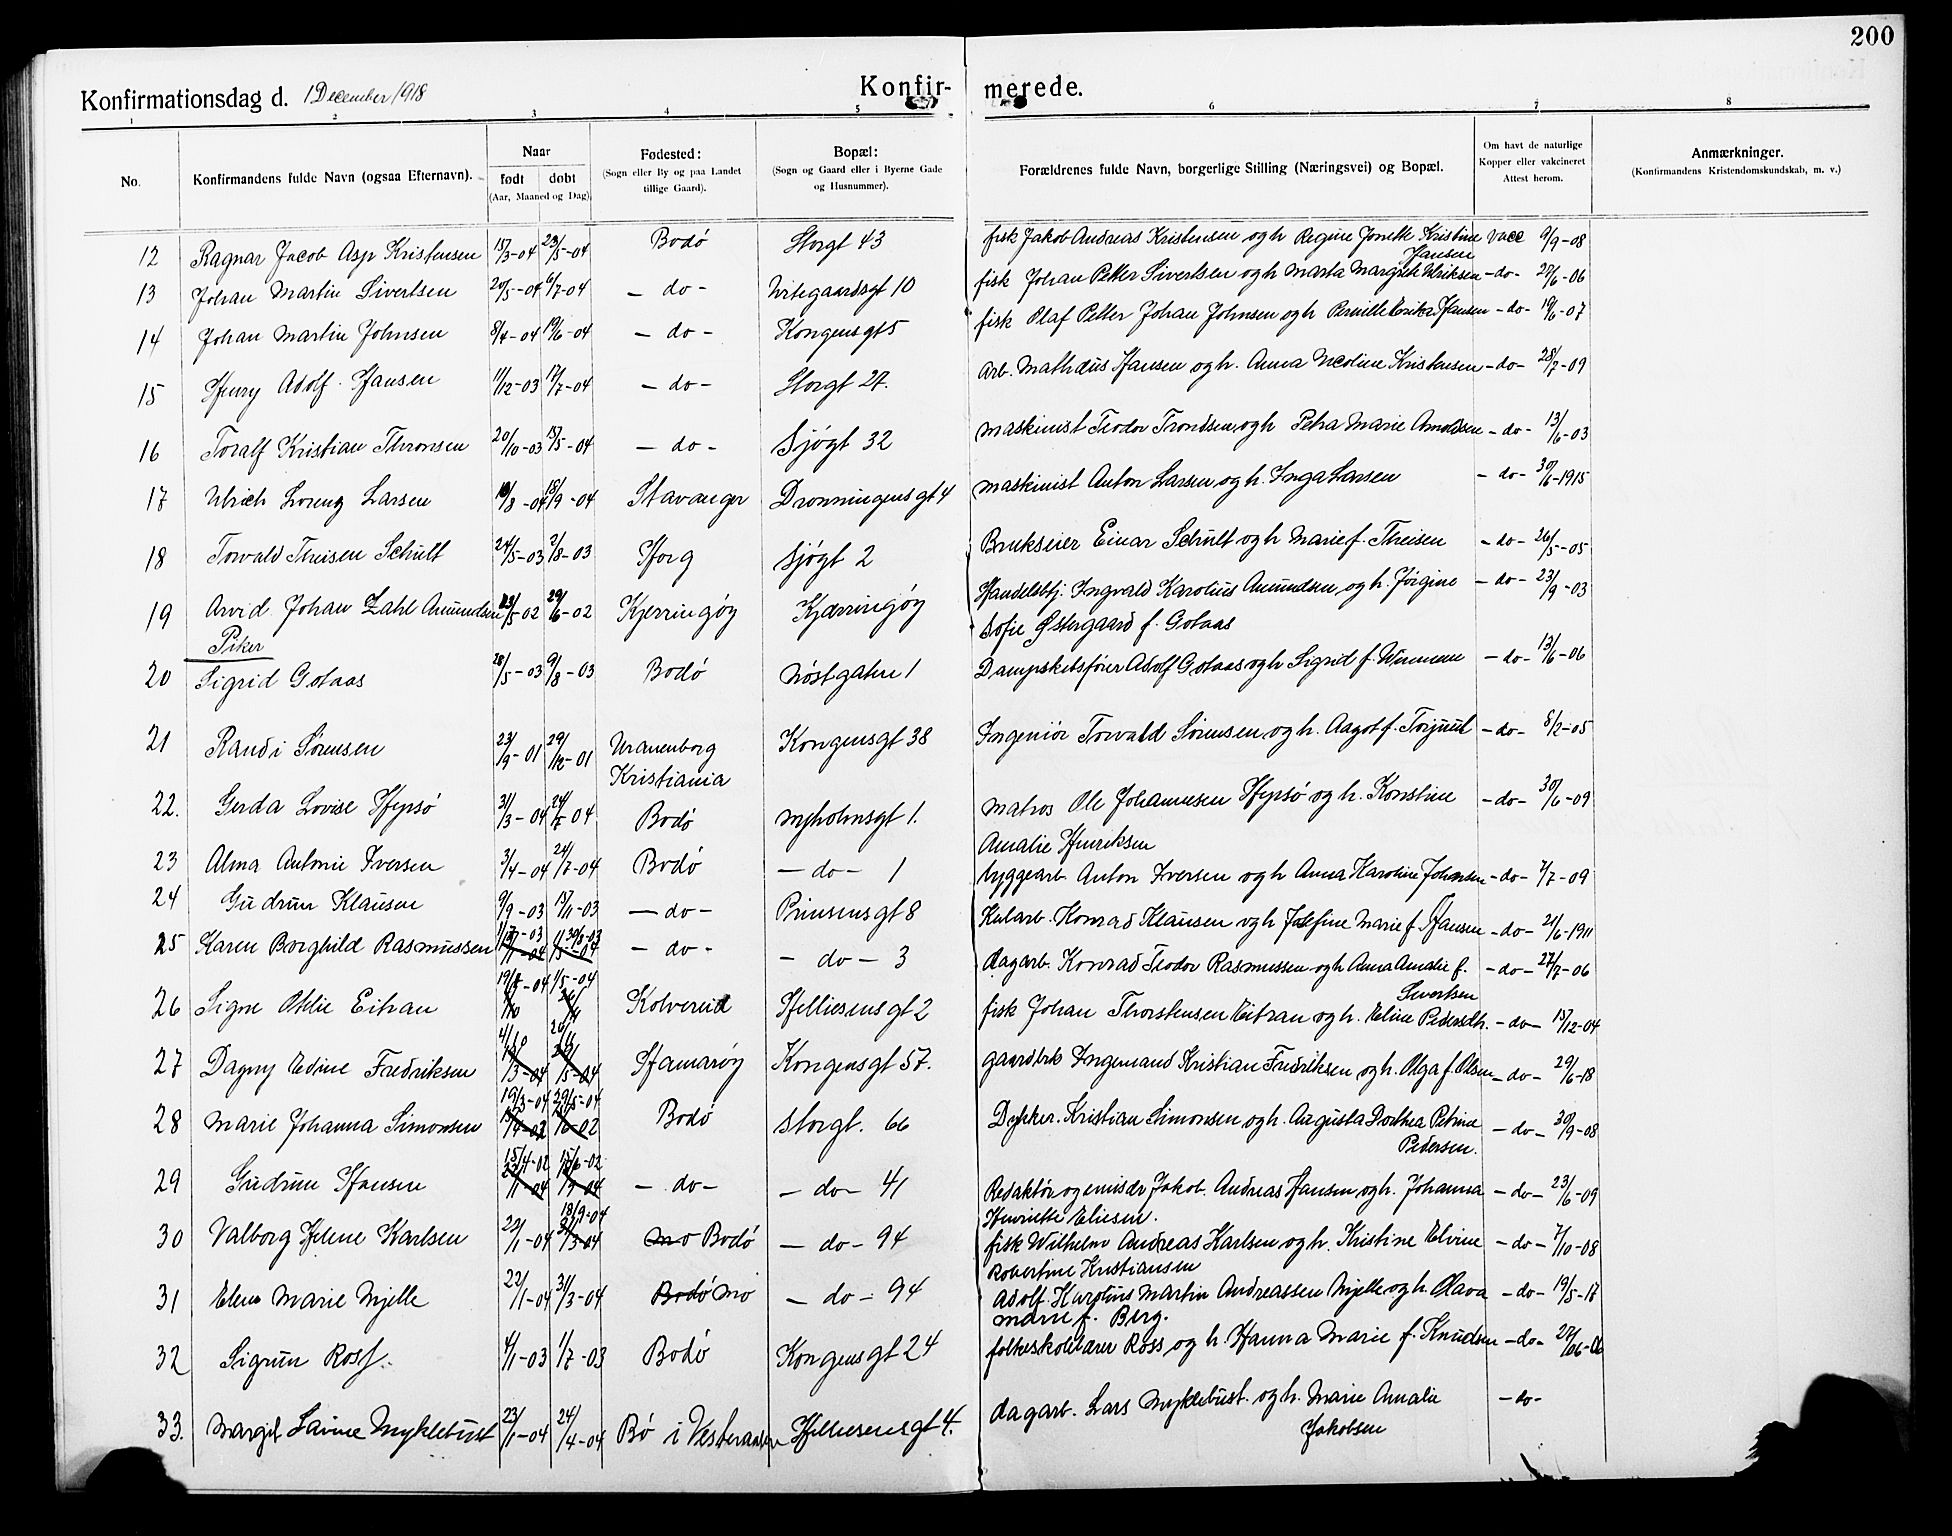 200
Konfirmationsdag d. 1 December 1918 Konfir- merede.
1 2 3 4 5 6 7 8
No. Konfirmandens fulde Navn (ogsaa Efternavn). Naar født døbt (Aar, Maaned og Dag). Fødested: (Sogn eller By og paa Landet tillige Gaard). Bopæl: (Sogn og Gaard eller i Byerne Gade og Husnummer). Forældrenes fulde Navn, borgerlige Stilling (Næringsvei) og Bopæl. Om havt de naturlige Kopper eller vakcineret Attest herom. Anmærkninger. (Konfirmandens Kristendomskundskab, m. v.)
12 Ragnar Jacob Asp Kristensen 15/3-04 23/5-04 Bodø Storgt 43 fisk Jakob Andreas Kristensen og h Regine Jonette Kristine vacc 9/9-08
Hansen
13 Johan Martin Sivertsen 20/5-04 6/7-04 - do - Hvitegaardsgt 10 fisk Johan Petter Sivertsen og h Marta Margrete Ulriksen - do - 27/6-06
14 Johan Martin Johnsen 8/4-04 19/6-04 - do - Kongensgt 5 fisk Olaf Petter Johan Johnsen og h Pernille Erika Hansen - do - 19/6-07
15 Henry Adolf Hansen 11/12-03 17/7-04 - do - Storgt 27. Arb. Mathæus Hansen og h. Anna Nicoline Kristensen - do - 28/7-09
16 Toralf Kristian Thronsen 20/10-03 15/5-04 - do - Sjøgt 32 maskinist Teodor Trondsen og h Petra Marie Arnoldsen - do - 13/6-03
17 Ulrich Lorenz Larsen /8-04 18/9-04 Stavanger Dronningensgt 4 maskinist Anton Larsen og h. Inga Larsen - do - 30/6-1915
18 Torvald Theisen Schult 24/5-03 2/8-03 Sjøgt 2 Brukseier Einar Schult og h Marie f. Theisen - do - 26/5-05
19 Arvid Johan Zahl Amundsen /5-02 29/6-02 Kjerringøy Kjærringøy Handelsbtj. Ingvald Karolius Amundsen og h. Jørgine - do - 23/9-03
Sofie Østergaard f. Gotaas
Piker
20 Sigrid Gotaas 28/5-03 9/8-03 Bodø Nøstgaten 1 Dampskibsfører Adolf Gotaas og h Sigrid f. - do - 13/6-06
21 Randi Sørensen 23/9-01 29/12-01 Uranienborg Kongensgt 38 Ingeniør Torvald Sørensen og h. Aagot f. - do - 8/2-05
Kristiania
22. Gerda Lovise Hepsø 31/3-04 24/7-04 Bodø Nyholmsgt 1. matros Ole Johannesen Hepsø og h. Konstine - do - 30/6-09
Amalie Henriksen
23 Alma Antonie Iversen 3/4-04 24/7-04 Bodø - do - 1 byggearb Anton Iversen og h Anna Karoline Johnsen - do - 7/7-09
24 Gudrun Klausen 9/9-03 15/11-03 - do - Prinsensgt 8 Kularb. Konrad Klausen og h Josefine Marie f. Hansen - do - 21/6-1911
25 Karen Borghild Rasmussen -03 30/8-03 - do - - do - 3 dagarb. Konrad Teodor Rasmussen og h Anna Amalie f. - do - 27/7-06
Sivertsen
26 Signe Otilie Eitran 1/5-04 Kolvereid Helliesensgt 2 fisk Johan Thorstensen Eitran og h. Eline Pedersdt. - do - 15/12-04
27 Dagny Edine Fredriksen Hamarøy Kongensgt 57. gaardbrk Ingemand Kristian Fredriksen og h. Olga f. Olsen - do - 29/6-18
28 Marie Johanna Simonsen 19/3-04 29/5-04 Bodø Storgt. 66 Dykker. Kristian Simonsen og h. Augusta Dorthea Petrine - do - 30/9-08
Pedersen.
29 Gudrun Hansen 15/4-02 15/6-02 - do - - do - 41 Redaktør og emisær Jakob. Andreas Hansen og h. Johanna - do - 23/6-09
Henriette Eliesen.
30 Valborg Helene Karlsen 22/1-04 18/9-04 Mo Bodø - do - 94 fisk Wilhelm Andreas Karlsen og h. Kristine Elvine - do - 7/10-08
Robertine Kristiansen
31 Elen Marie Mjelle 22/1-04 31/3-04 Bodø Mo - do - 94 Adolf. Karolius Martin Andreassen Mjelle og h. Olava - do - 19/5-17
Marie f. Berg.
32 Sigrun Ross. 4/1-03 1/7-03 Bodø Kongensgt 24 folkeskolelærer Ross og h. Hanna Marie f. Knudsen - do - 27/06-06
33. Margit Lavine Myklebust 23/1-04 24/4-04 Bø i Vesteraalen Helliesensgt 4. dagarb. Lars Myklebust. og h. Marie Amalie - do -
Jakobsen